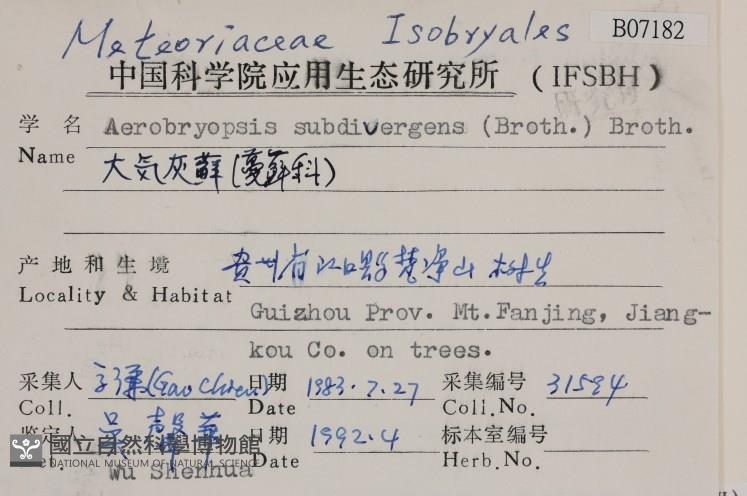 Meteoriaceae Isobryales B07182
中国科学院应用生态研究所 (IFSBH)
学名 Aerobryopsis subdivergens (Broth.) Broth.
Name 大气灰藓(蔓藓科)
产地和生境 贵州省江口县梵净山 树生
Locality & Habitat Guizhou Prov. Mt.Fanjing, Jiang-
kou Co. on trees.
采集人 (Gao Chien) 日期 1983.7.27 采集编号 31594
Coll. Date Coll.No.
鉴定人 吴 日期 1992.4 标本室编号
Det. Wu Shenhua Date Herb.No.
國立自然科學博物館
NATIONAL MUSEUM OF NATURAL SCIENCE